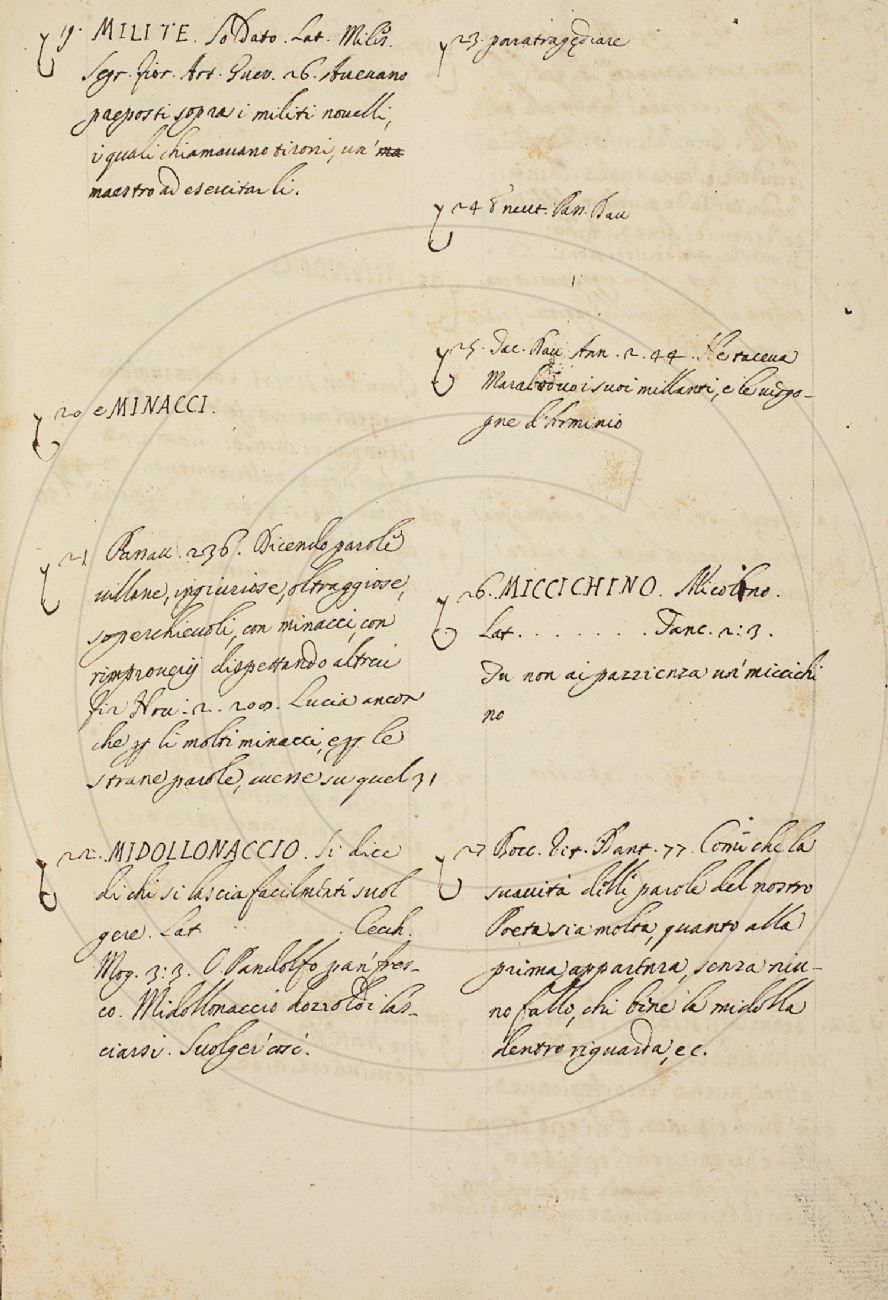 19. MILITE. Soldato. Lat. Miles.
Segr. fior. Art. Guer. 26. Aueuano
preposti sopra i militi nouelli,
i quali chiamauano tironi, un' ma
maestro ad esercitarli.
20 e MINACCI.
21 Passau. 236. Dicendo parole
uillane, ingiuriose, oltraggiose,
soperchieuoli, con minacci, con
rimproueri dispettando altrui
fir 2. 200. Lucia ancor
che p li molti minacci, e p le
strane parole, auesse su quel
22. MIDOLLONACCIO. Si dice
di chi si lascia facilmente suol
gere. Lat . Cecch.
Mog. 3: 3. O Pandolfo pan' fres-
co. Midollonaccio las-
ciarsi. Suolger' cosi.
23. paratragediare
24 neut. Pass. Dau
25. Tac. Dau. Ann. 2. 44. Ne taceua
Maraboduo i suoi millanti, e le uergo-
gne d'Arminio
26. MICCICHINO. Micolino.
Lat. . . . . . . . Tanc. 2: 3.
Tu non ai pazzienza un' miccichi
no
27 Bocc. Vit. Dant. 77. Comū che la
suauità delle parole del nostro
Poeta sia molta, quanto alla
prima appartnza, senza niu-
no fallo, chi bene la midolla
dentro riguarda, ec.